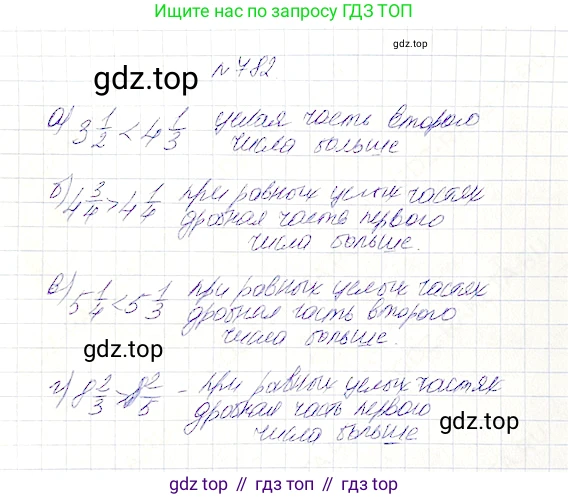 Ищите нас по запросу ГДЗ ТОП
gdz.top
№782
gdz.top
а) 3 1/2 < 4 1/3 целая часть второго
числа больше.
б) 4 3/4 > 4 1/4 при равных целых частях
дробная часть первого
числа больше.
в) 5 1/4 < 5 1/3 при равных целых частях
дробная часть второго
числа больше.
gdz.top
г) 8 2/3 > 8 2/5 - при равных целых частях
дробная часть первого
числа больше
gdz.top
gdz.top // гдз топ // gdz.top